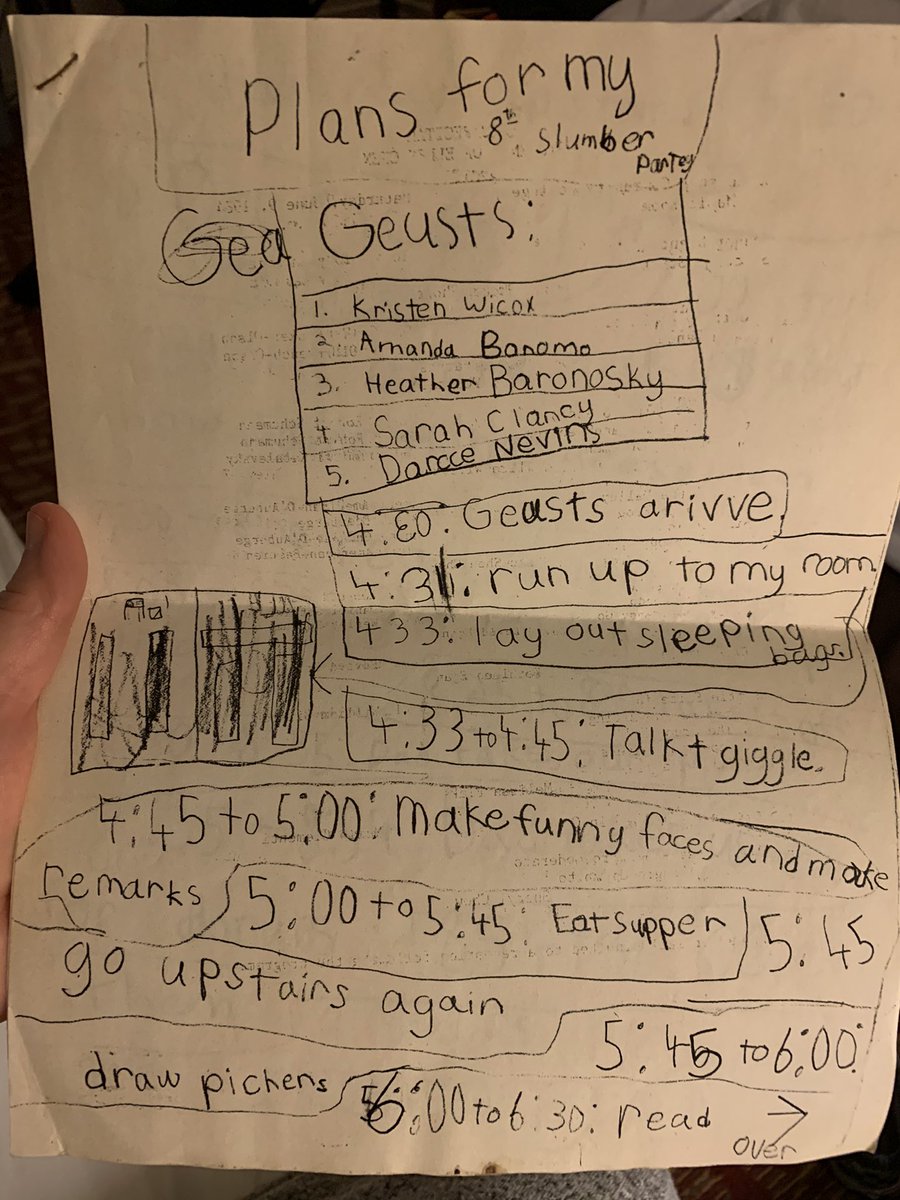 Plans for my
8th Slumber
Partey
Gea Geusts:
1. Kristen Wicox
2. Amanda Bonomo
3. Heather Baronosky
4. Sarah Clancy
5. Darcce Nevins
4:30: Geusts arivve
4:31: run up to my room
433: lay out sleeping
bags
4:33 to 4:45: Talk + giggle.
4:45 to 5:00: Make funny faces and make
remarks 5:00 to 5:45: Eat supper 5:45
go upstairs again
5:45 to 6:00:
draw pichers 6:00 to 6:30: read
over